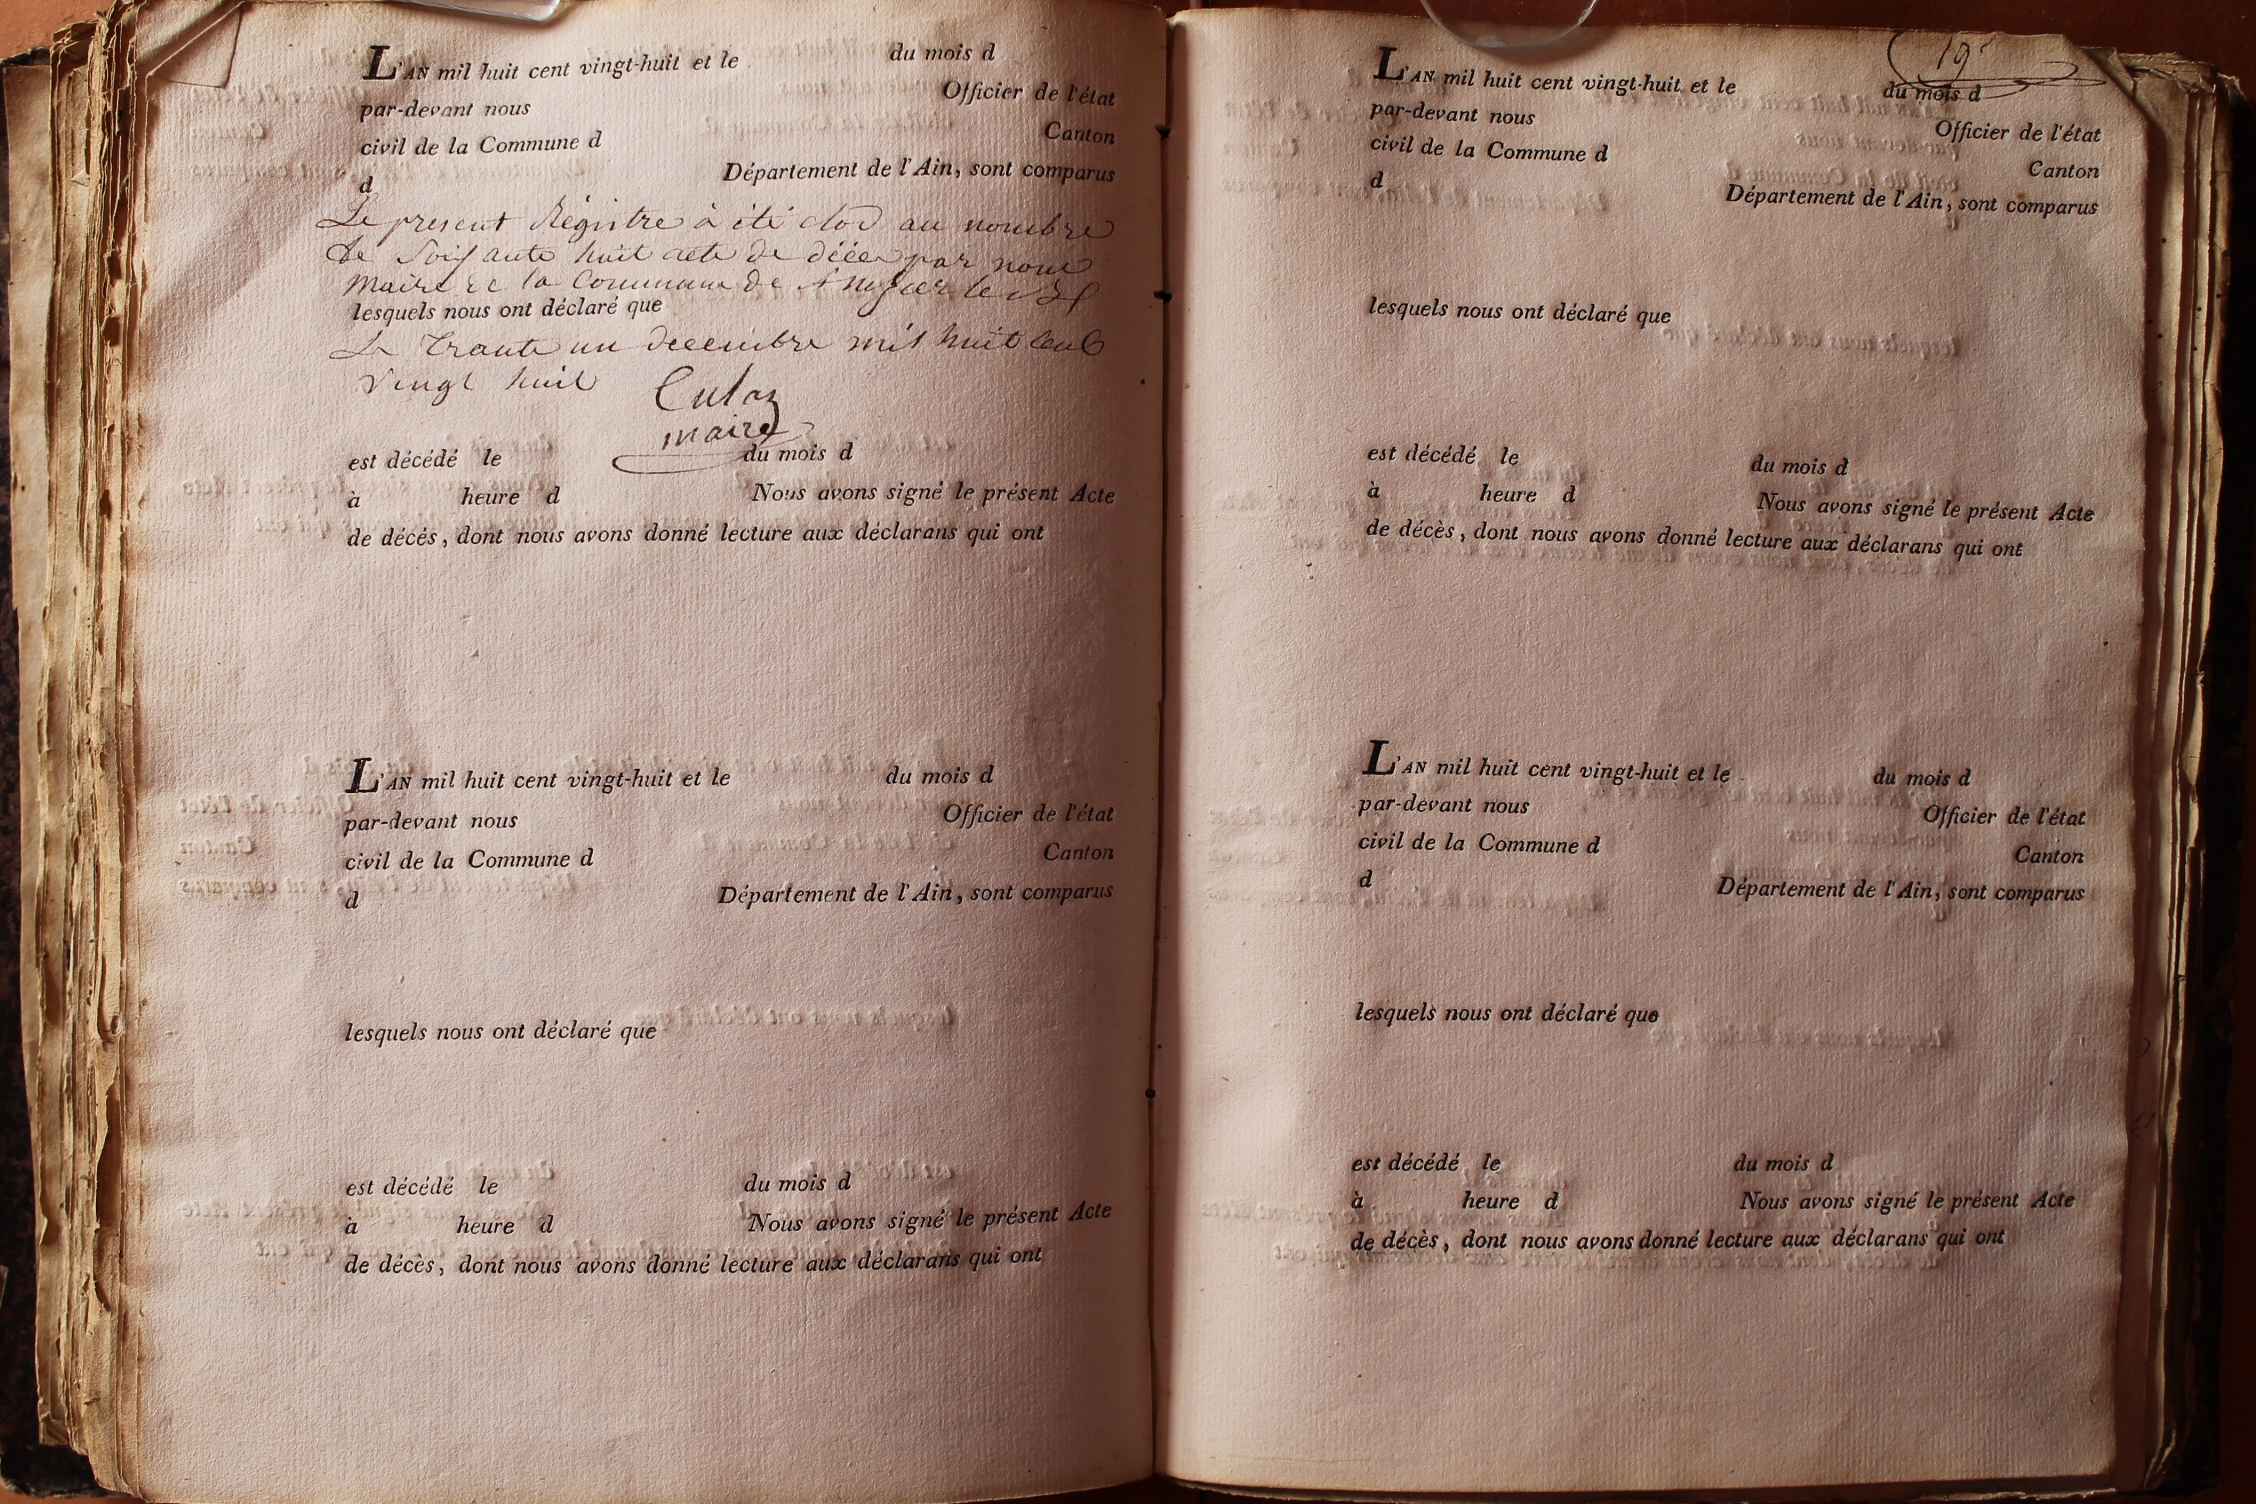 L'AN mil huit cent vingt-huit et le du mois d
par-devant nous Officier de l'état
civil de la Commune d Canton
d Département de l'Ain, sont comparus
Le present Régistre à été clos au nombre
de Soixante huit acte de décès par nous
Maire de la Commune de
lesquels nous ont déclaré que
Le Trante un decembre mil huit cent
vingt huit
Culaz
maire
est décédé le du mois d
à heure d Nous avons signé le présent Acte
de décés, dont nous avons donné lecture aux déclarans qui ont
L'AN mil huit cent vingt-huit et le du mois d
par-devant nous Officier de l'état
civil de la Commune d Canton
d Département de l'Ain, sont comparus
lesquels nous ont déclaré que
est décédé le du mois d
à heure d Nous avons signé le présent Acte
de décès, dont nous avons donné lecture aux déclarans qui ont
19
L'AN mil huit cent vingt-huit et le du mois d
par-devant nous Officier de l'état
civil de la Commune d Canton
d Département de l'Ain, sont comparus
lesquels nous ont déclaré que
est décédé le du mois d
à heure d Nous avons signé le présent Acte
de décès, dont nous avons donné lecture aux déclarans qui ont
L'AN mil huit cent vingt-huit et le du mois d
par-devant nous Officier de l'état
civil de la Commune d Canton
d Département de l'Ain, sont comparus
lesquels nous ont déclaré que
est décédé le du mois d
à heure d Nous avons signé le présent Acte
de décès, dont nous avons donné lecture aux déclarans qui ont